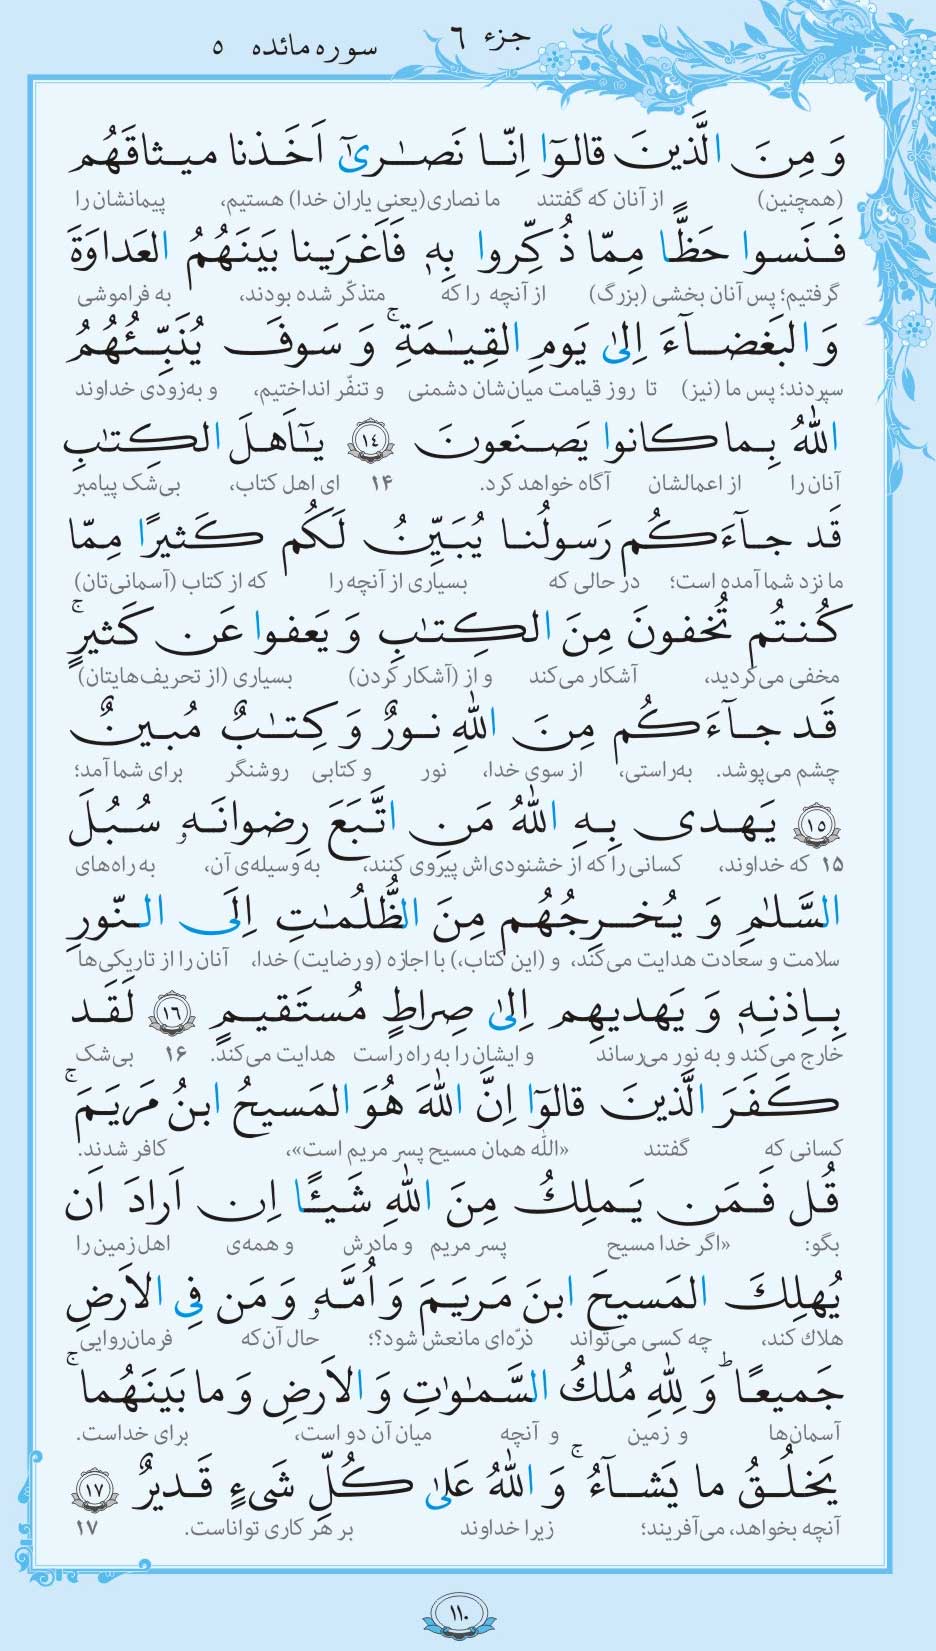 جزء ۶ سوره مائده ۵
وَ مِنَ الَّذینَ قالوٓا اِنّا نَصٰریٰٓ اَخَذنا میثاقَهُم
(همچنین) از آنان که گفتند ما نصاری(یعنی یاران خدا) هستیم، پیمانشان را
فَنَسوا حَظًّا مِمّا ذُکِّروا بِهٖ فَاَغرَینا بَینَهُمُ العَداوَةَ
گرفتیم؛ پس آنان بخشی (بزرگ) از آنچه را که متذکّر شده بودند، به فراموشی
وَ البَغضآءَ اِلیٰ یَومِ القِیٰمَةِ ۚ وَ سَوفَ یُنَبِّئُهُمُ
سپردند؛ پس ما (نیز) تا روز قیامت میان‌شان دشمنی و تنفّر انداختیم، و به‌زودی خداوند
اللّٰهُ بِما کانوا یَصنَعونَ ﴿١٤﴾ یٰٓاَهلَ الکِتٰبِ
آنان را از اعمالشان آگاه خواهد کرد. ۱۴ ای اهل کتاب، بی‌شک پیامبر
قَد جآءَکُم رَسولُنا یُبَیِّنُ لَکُم کَثیرًا مِمّا
ما نزد شما آمده است؛ در حالی که بسیاری از آنچه را که از کتاب (آسمانی‌تان)
کُنتُم تُخفونَ مِنَ الکِتٰبِ وَ یَعفوا عَن کَثیرٍ ۚ
مخفی می‌کردید، آشکار می‌کند و از (آشکار کردن) بسیاری (از تحریف‌هایتان)
قَد جآءَکُم مِنَ اللّٰهِ نورٌ وَ کِتٰبٌ مُبینٌ
چشم می‌پوشد. به‌راستی، از سوی خدا، نور و کتابی روشنگر برای شما آمد؛
﴿١٥﴾ یَهدی بِهِ اللّٰهُ مَنِ اتَّبَعَ رِضوانَهٗ سُبُلَ
۱۵ که خداوند، کسانی را که از خشنودی‌اش پیروی کنند، به وسیله‌ی آن، به راه‌های
السَّلٰمِ وَ یُخرِجُهُم مِنَ الظُّلُمٰتِ اِلَی النّورِ
سلامت و سعادت هدایت می‌کند، و (این کتاب،) با اجازه (و رضایت) خدا، آنان را از تاریکی‌ها
بِاِذنِهٖ وَ یَهدیهِم اِلیٰ صِراطٍ مُستَقیمٍ ﴿١٦﴾ لَقَد
خارج می‌کند و به نور می‌رساند و ایشان را به راه راست هدایت می‌کند. ۱۶ بی‌شک
کَفَرَ الَّذینَ قالوٓا اِنَّ اللّٰهَ هُوَ المَسیحُ ابنُ مَریَمَ ۚ
کسانی که گفتند «اللّٰه همان مسیح پسر مریم است»، کافر شدند.
قُل فَمَن یَملِکُ مِنَ اللّٰهِ شَیـًٔا اِن اَرادَ اَن
بگو: «اگر خدا مسیح پسر مریم و مادرش و همه‌ی اهل زمین را
یُهلِکَ المَسیحَ ابنَ مَریَمَ وَ اُمَّهٗ وَ مَن فِی الاَرضِ
هلاك کند، چه کسی می‌تواند ذرّه‌ای مانعش شود؟؛ حال آن‌که فرمان‌روایی
جَمیعًا ۗ وَ لِلّٰهِ مُلکُ السَّمٰوٰتِ وَ الاَرضِ وَ ما بَینَهُما ۚ
آسمان‌ها و زمین و آنچه میان آن دو است، برای خداست.
یَخلُقُ ما یَشآءُ ۚ وَ اللّٰهُ عَلیٰ کُلِّ شَیءٍ قَدیرٌ ﴿١٧﴾
آنچه بخواهد، می‌آفریند؛ زیرا خداوند بر هر کاری تواناست. ۱۷
۱۱۰